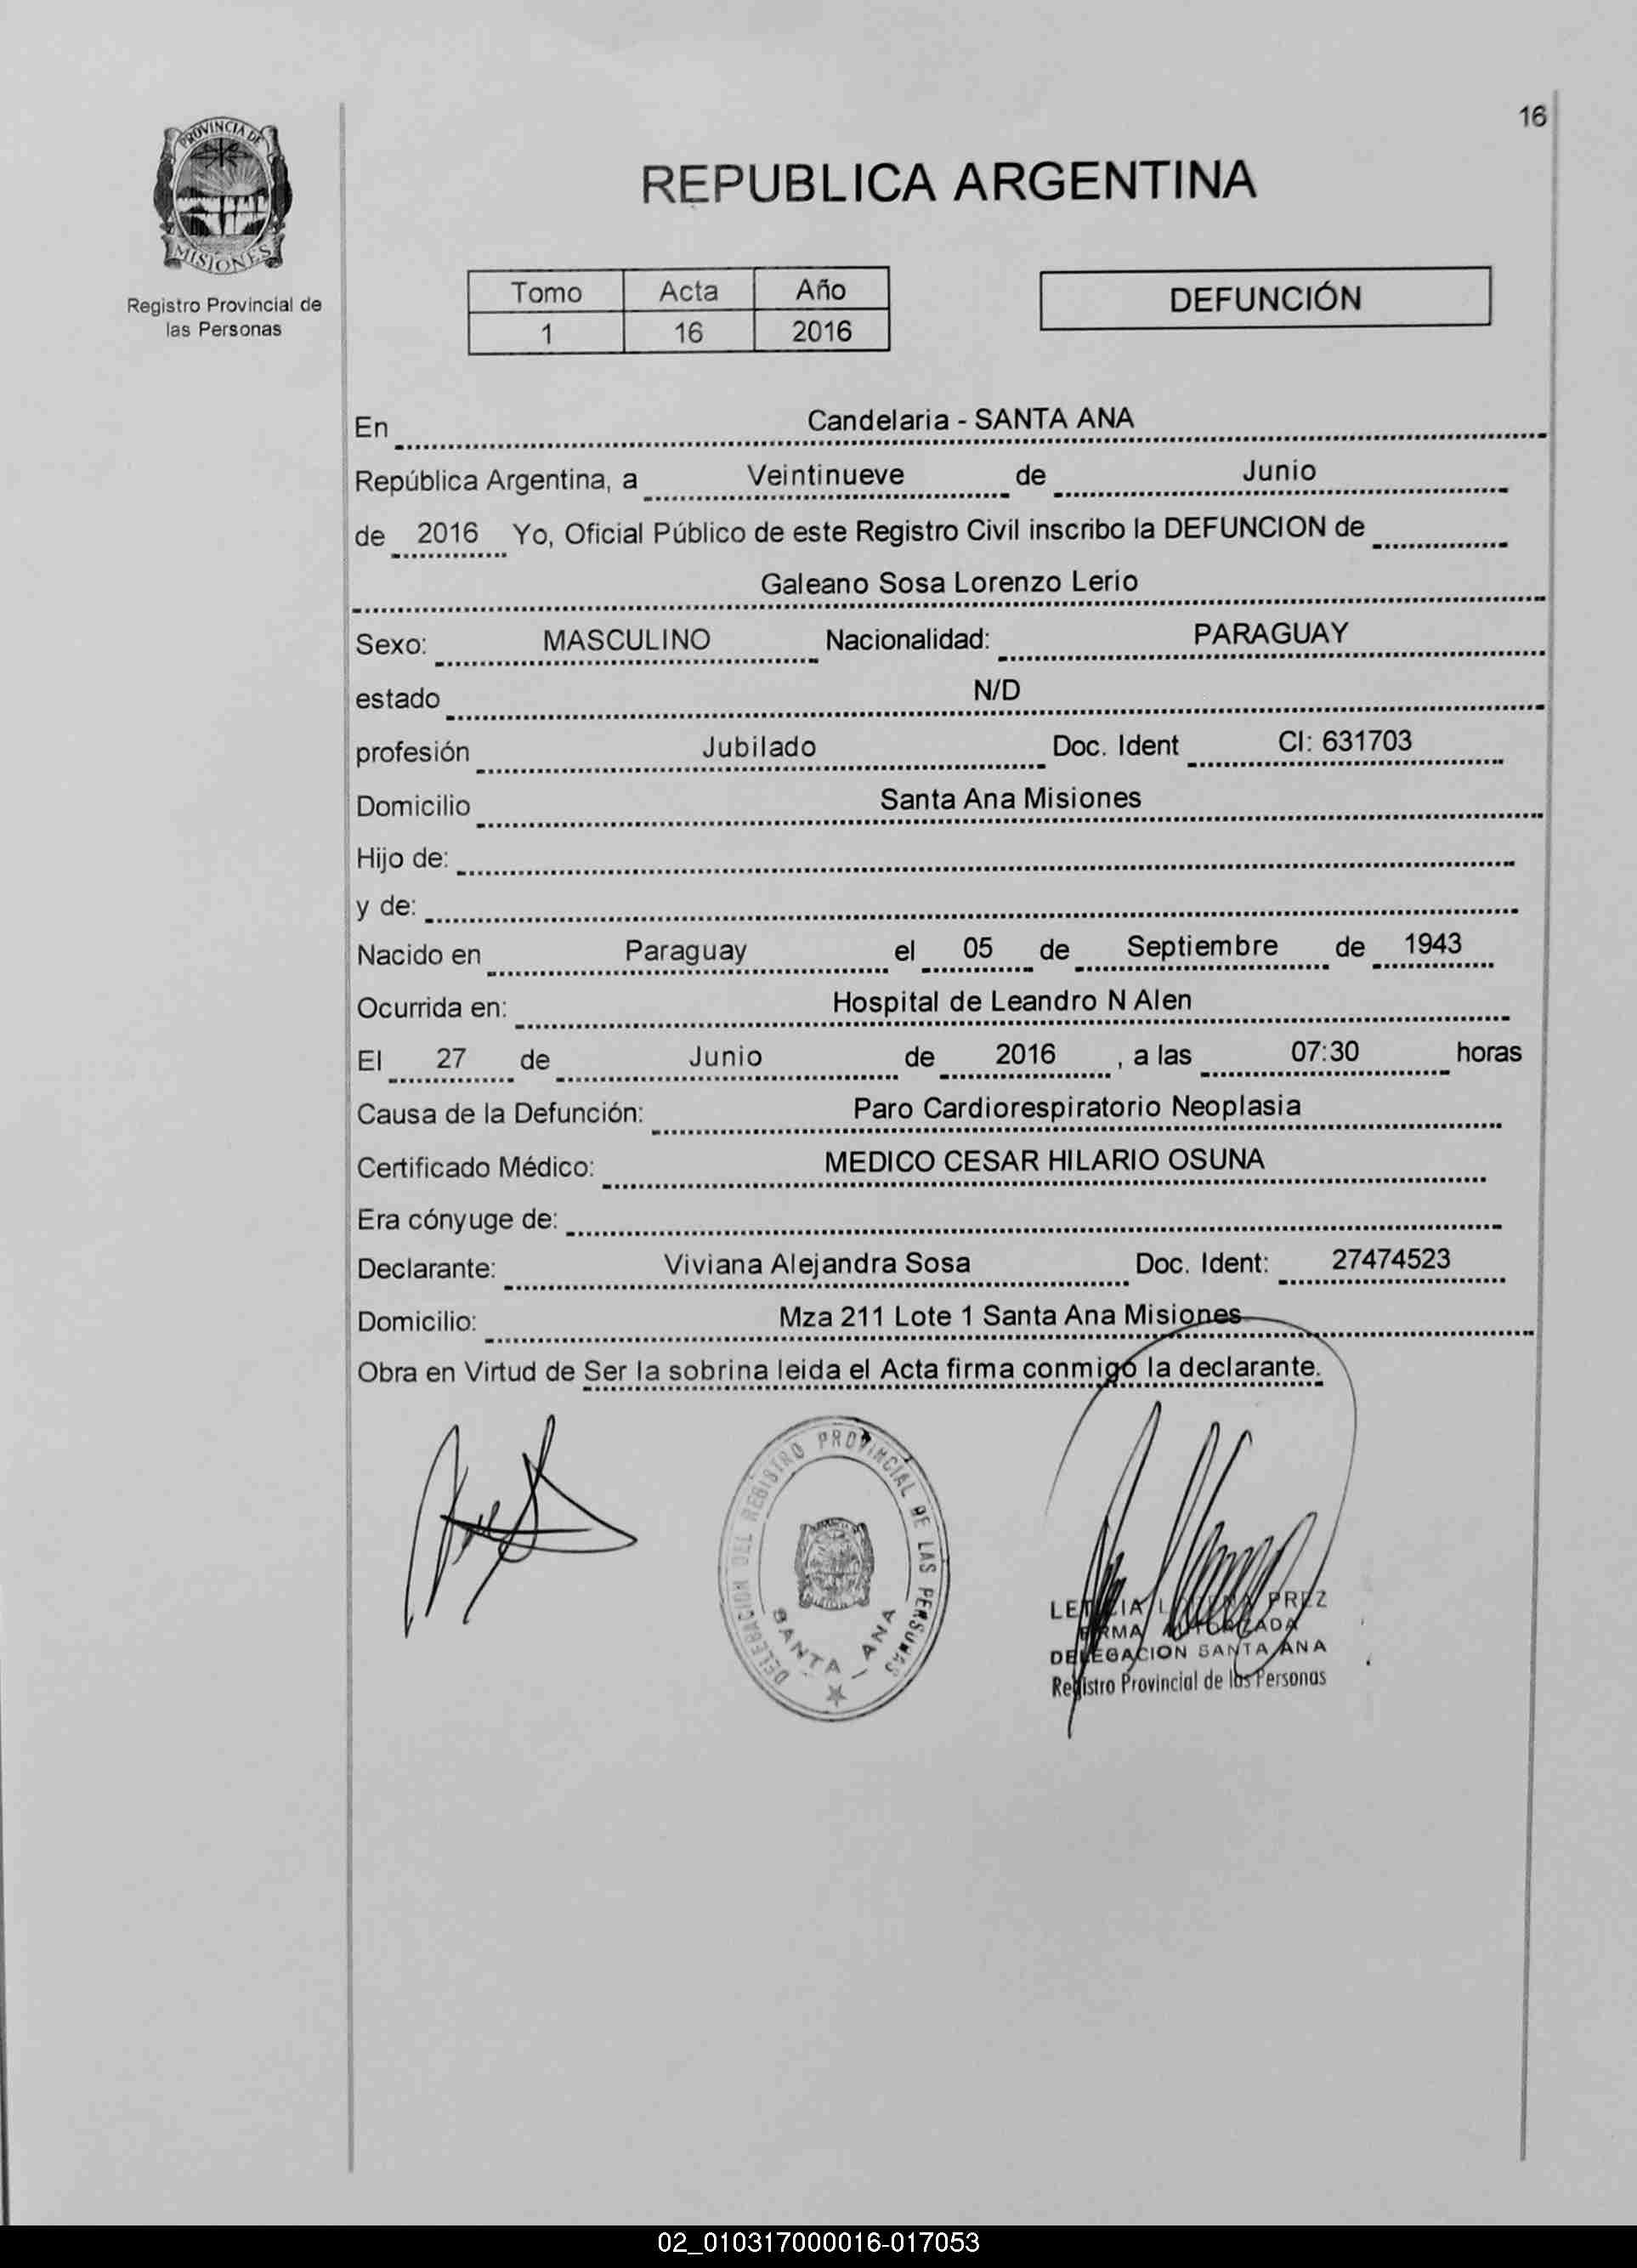 16
PROVINCIA DE
MISIONES
Registro Provincial de
las Personas
REPUBLICA ARGENTINA
Tomo Acta Año
1 16 2016
DEFUNCIÓN
En Candelaria - SANTA ANA
República Argentina, a Veintinueve de Junio
de 2016 Yo, Oficial Público de este Registro Civil inscribo la DEFUNCION de
Galeano Sosa Lorenzo Lerio
Sexo: MASCULINO Nacionalidad: PARAGUAY
estado N/D
profesión Jubilado Doc. Ident CI: 631703
Domicilio Santa Ana Misiones
Hijo de:
y de:
Nacido en Paraguay el 05 de Septiembre de 1943
Ocurrida en: Hospital de Leandro N Alen
El 27 de Junio de 2016 , a las 07:30 horas
Causa de la Defunción: Paro Cardiorespiratorio Neoplasia
Certificado Médico: MEDICO CESAR HILARIO OSUNA
Era cónyuge de:
Declarante: Viviana Alejandra Sosa Doc. Ident: 27474523
Domicilio: Mza 211 Lote 1 Santa Ana Misiones
Obra en Virtud de Ser la sobrina leida el Acta firma conmigo la declarante.
DELEGACION DEL REGISTRO PROVINCIAL DE LAS PERSONAS
SANTA ANA
LETICIA
FIRMA AUTORIZADA
DELEGACION SANTA ANA
Registro Provincial de las Personas
02_010317000016-017053